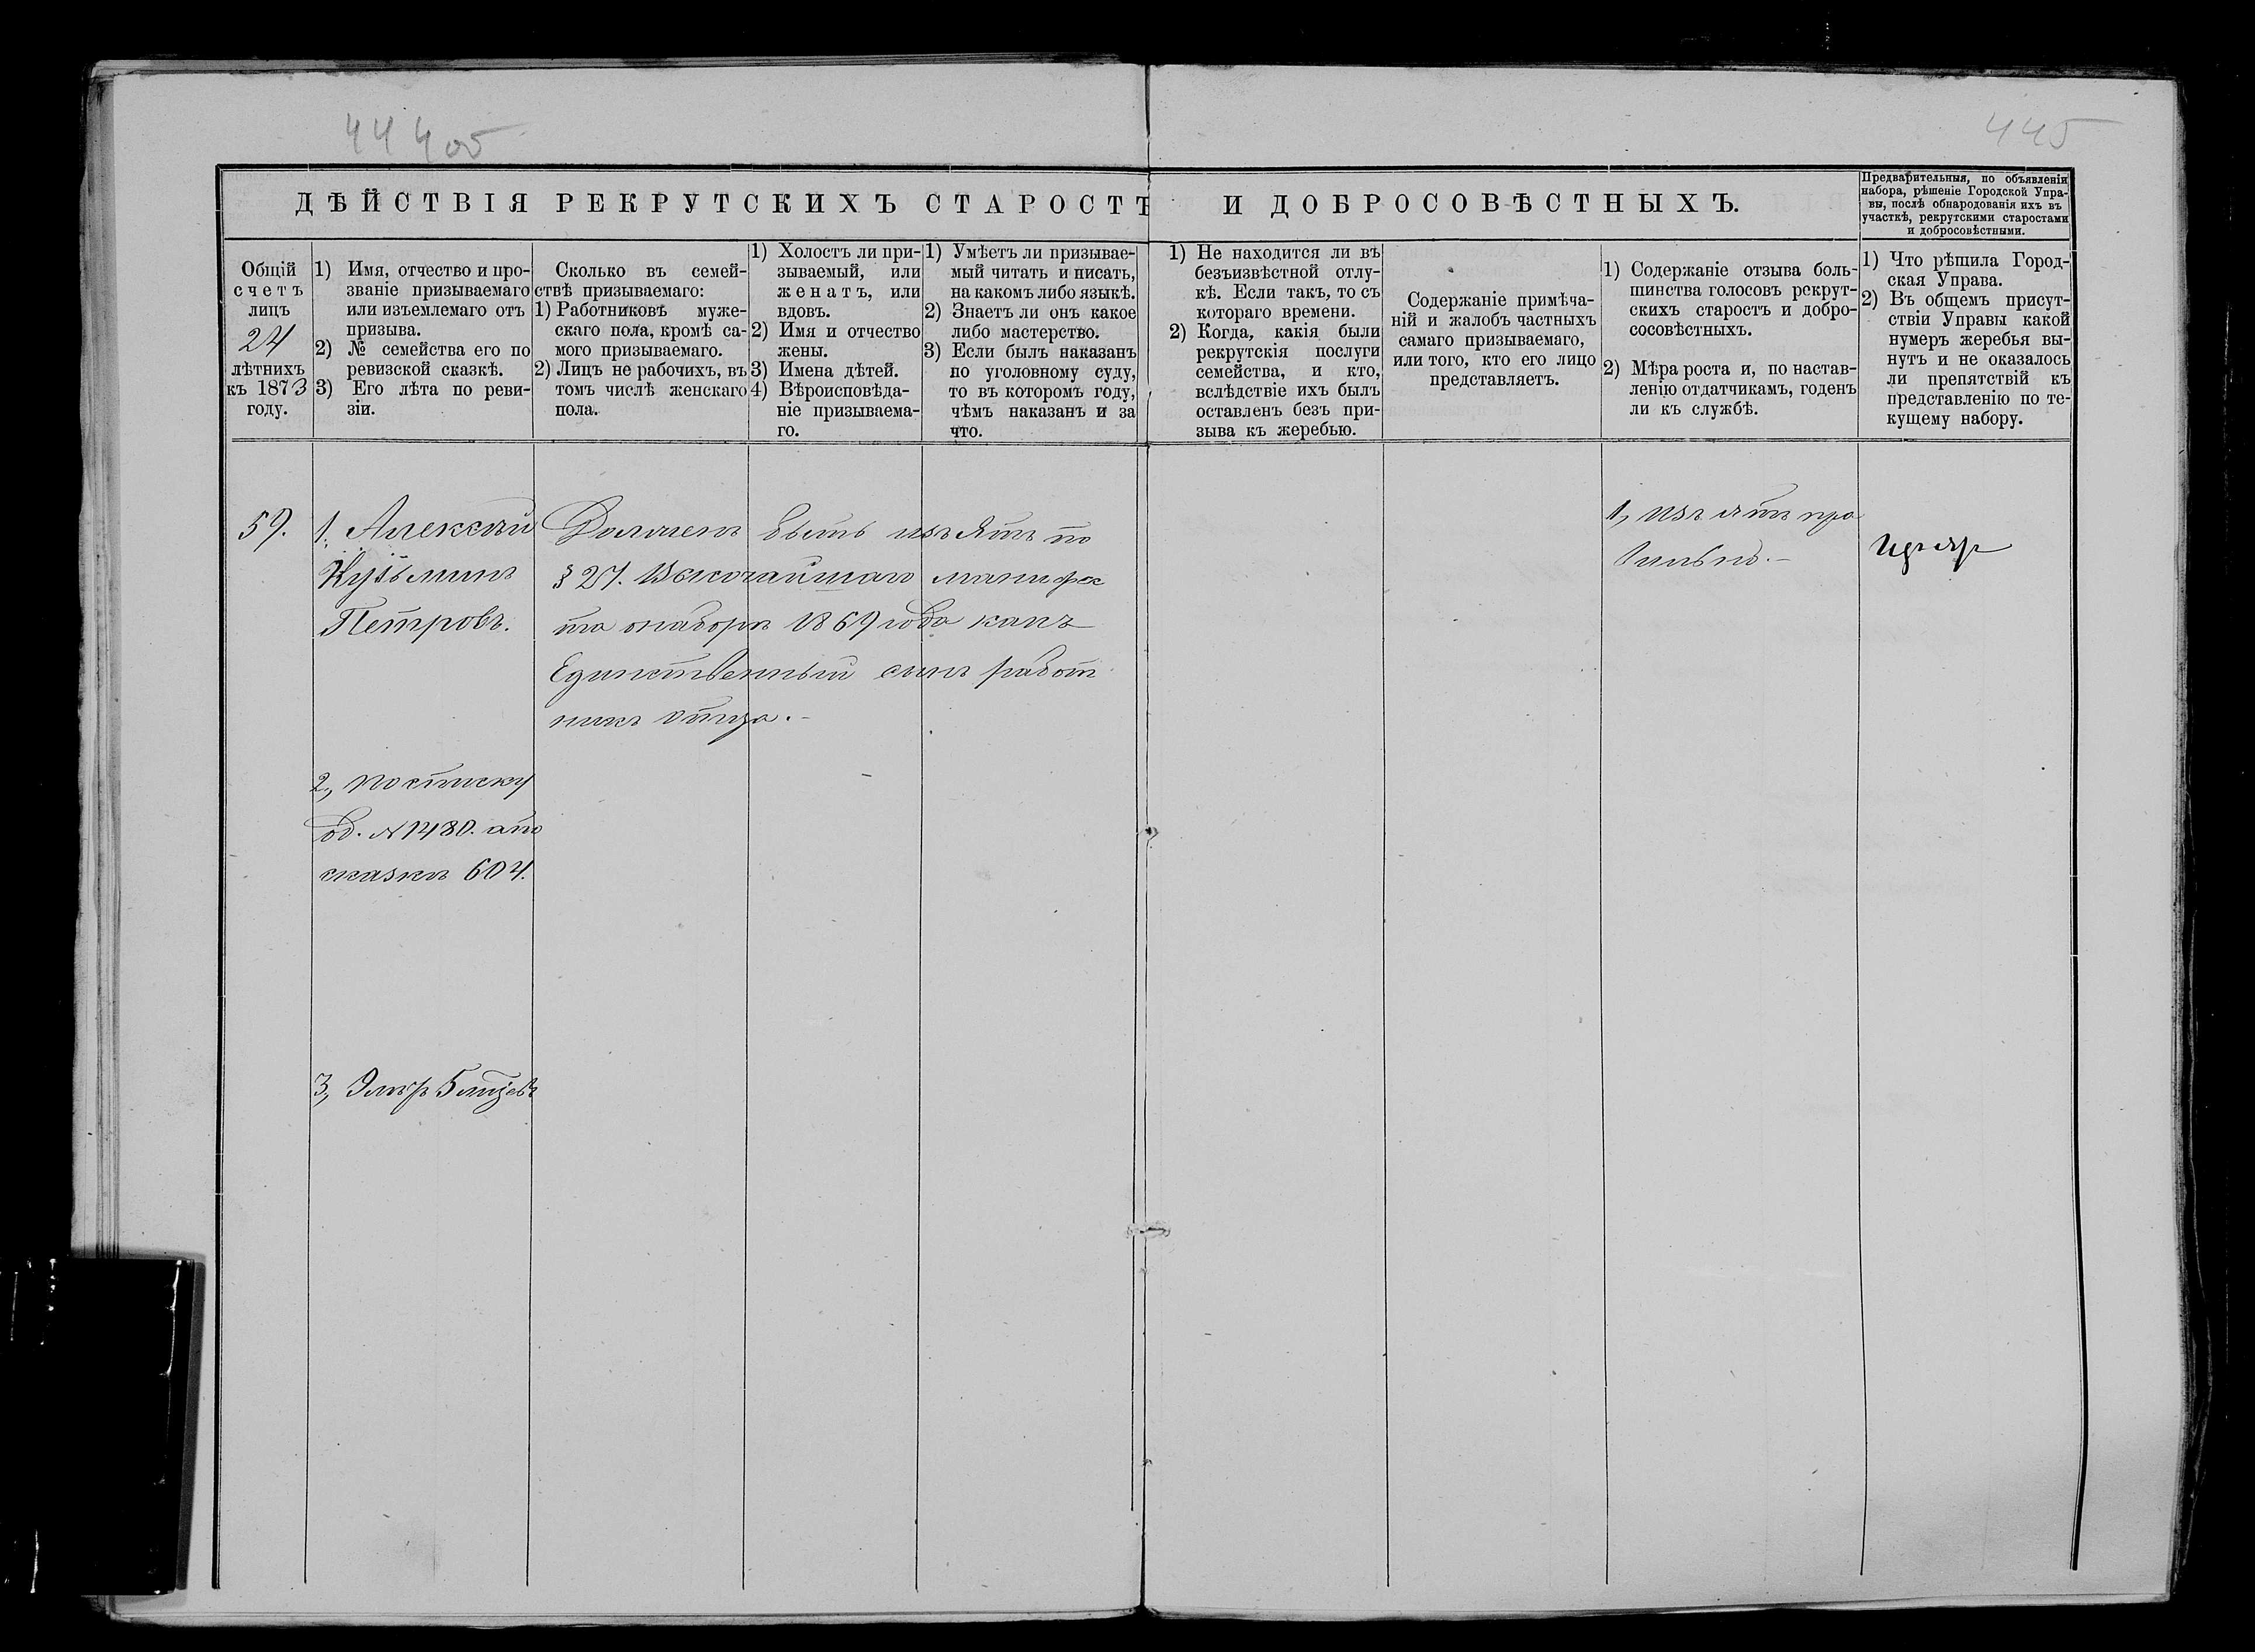 444 об
445
ДѢЙСТВІЯ РЕКРУТСКИХЪ СТАРОСТЪ И ДОБРОСОВѢСТНЫХЪ.
Предварительныя, по объявленіи
набора, рѣшеніе Городской Упра-
вы, послѣ обнародованія ихъ въ
участкѣ, рекрутскими старостами
и добросовѣстными.
Общій
счетъ
лицъ
24
лѣтнихъ
къ 1873
году.
1) Имя, отчество и про-
званіе призываемаго
или изъемлемаго отъ
призыва.
2) № семейства его по
ревизской сказкѣ.
3) Его лѣта по реви-
зіи.
Сколько въ семей-
ствѣ призываемаго:
1) Работниковъ муже-
скаго пола, кромѣ са-
мого призываемаго.
2) Лицъ не рабочихъ, въ
томъ числѣ женскаго
пола.
1) Холостъ ли при-
зываемый, или
женатъ, или
вдовъ.
2) Имя и отчество
жены.
3) Имена дѣтей.
4) Вѣроисповѣда-
ніе призываема-
го.
1) Умѣетъ ли призывае-
мый читать и писать,
на какомъ либо языкѣ.
2) Знаетъ ли онъ какое
либо мастерство.
3) Если былъ наказанъ
по уголовному суду,
то въ которомъ году,
чѣмъ наказанъ и за
что.
1) Не находится ли въ
безъизвѣстной отлу-
кѣ. Если такъ, то съ
котораго времени.
2) Когда, какія были
рекрутскія послуги
семейства, и кто,
вслѣдствіе ихъ былъ
оставленъ безъ при-
зыва къ жеребью.
Содержаніе примѣча-
ній и жалобъ частныхъ
самаго призываемаго,
или того, кто его лицо
представляетъ.
1) Содержаніе отзыва боль-
шинства голосовъ рекрут-
скихъ старостъ и добро-
сосовѣстныхъ.
2) Мѣра роста и, по настав-
ленію отдатчикамъ, годенъ
ли къ службѣ.
1) Что рѣшила Город-
ская Управа.
2) Въ общемъ присут-
ствіи Управы какой
нумеръ жеребья вы-
нутъ и не оказалось
ли препятствій къ
представленію по те-
кущему набору.
59.
1, Алексѣй
Кузьминъ
Петровъ.
2, по списку
об. N 1480. а по
сказкѣ 604.
3,
Долженъ быть изъятъ по
§ 27. Высочайшаго манифес
та о наборѣ 1869 года какъ
Единственный сынъ работ
никъ отца.-
1, изъятъ пра
вильно.-